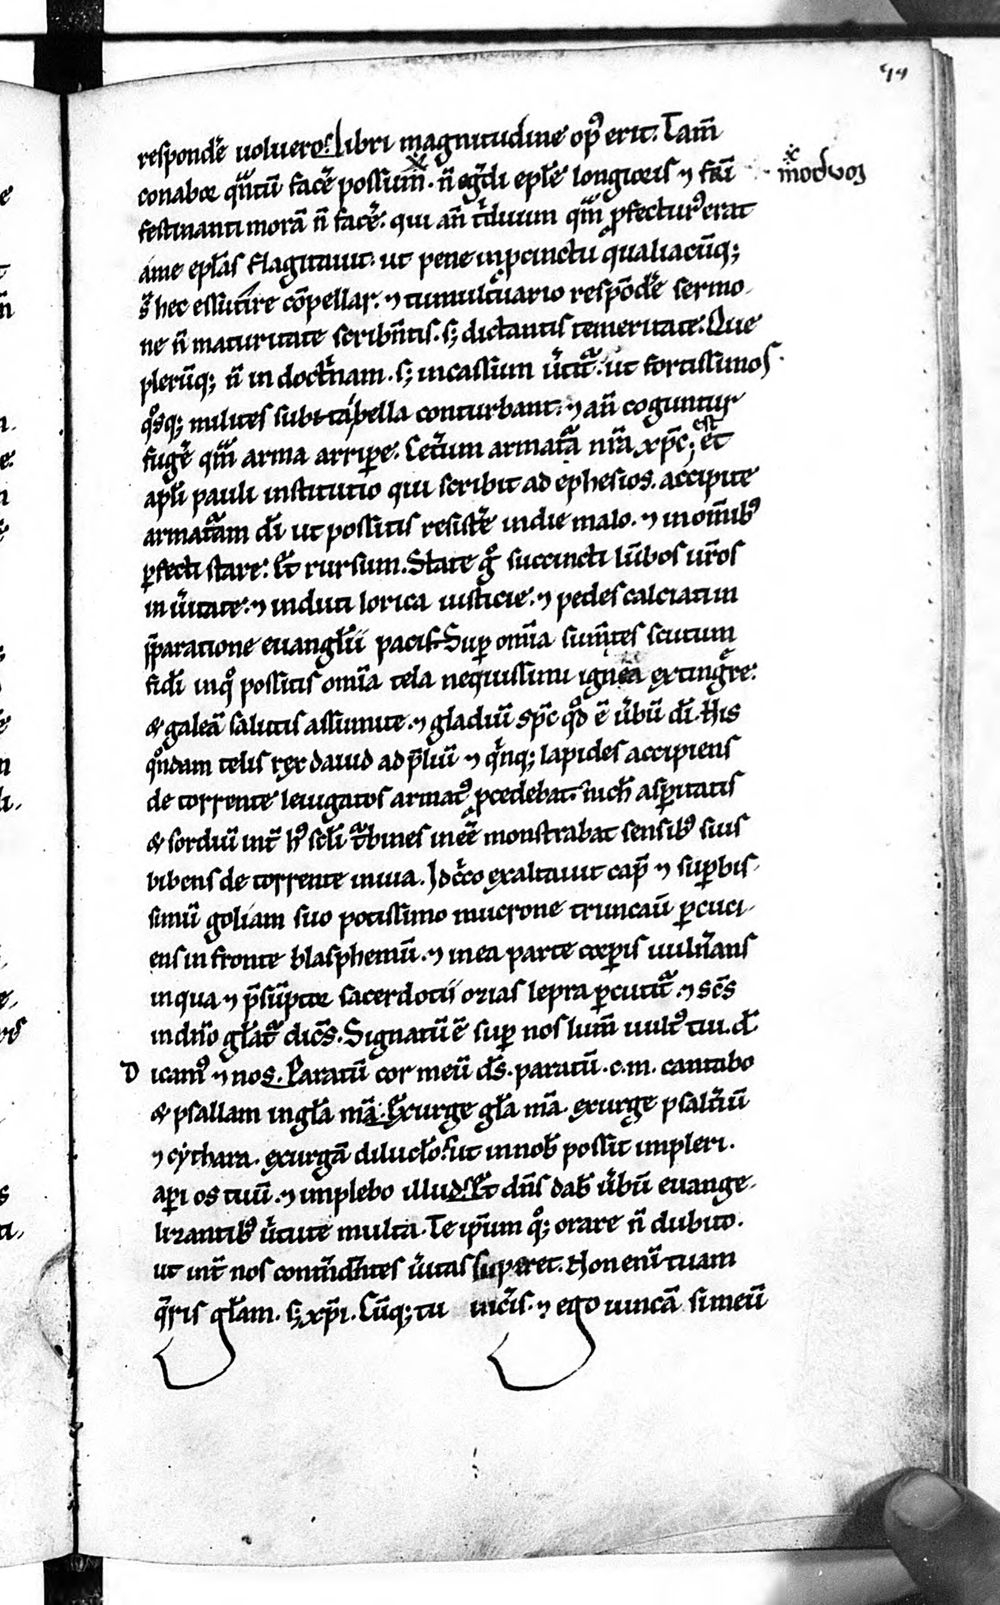 44
respondẽ uoluero. Libri magnitudine opꝰ erit. Tam̃
conabor qͣntũ facẽ possum̃. ñ egͬdi epłe longioris ⁊ frĩ
m̃odũ
festinanti morã ñ facẽ. qui añ tͥduum qͣm ꝓfecturꝰ erat
a me epłas flagitauit. ut pene in ꝓcinctu qualiacũq;
s̃ hec effutire cõpellar. ⁊ tumultuario respõdẽ sermo
ne ñ maturitate scribñtis. s; dictantis temeritate. Que
plerũq; ñ in doctͥnam. s; in cassum ũtit̃. ut fortissimos
qͦsq; milites subita bella conturbant. ⁊ añ coguntur
fugẽ qͣm arma arriꝑe. Cetẽum armatͣa nrã xp̃c; est et
apłi pauli institutio qui scribit ad ephesios. accipite
armatͣam dĩ ut possitis resistẽ in die malo. ⁊ in om̃ibꝰ
ꝑfecti stare. Et rursum. State gͦ succincti lũbos urõs
in ũitate. ⁊ induti lorica iusticie. ⁊ pedes calciati in
p̃paratione euangłii pacis. Suꝑ om̃ia sum̃tes scutum
fidĩ in qͦ possitis om̃ia tela nequissimi ignea extingͤre.
& galeã salutis assumite. ⁊ gladiũ sp̃c qͦd ẽ ũbũ dĩ. His
qͦndam telis rex dauid ad p̃liũ ⁊ qͥnq; lapides accipiens
de torrente leuigatos armatꝰ ꝓcedebat. nich̃ asꝑitatis
& sordiũ int̃ hꝰ scłi tͣbines in eẽ monstrabat sensibꝰ suis
bibens de torrente in uia. Idcͥco exaltauit cap̃ ⁊ suꝑbis
simũ goliam suo potissimo mucrone truncaũ ꝑcuci
ens in fronte blasphemũ. ⁊ in ea parte corꝑis uulñans
in qua ⁊ p̃sũptor sacerdotii ozias lepra ꝑcutit̃. ⁊ scs̃
in dño głat̃ dicẽs. Signatũ ẽ suꝑ nos lum̃ uultꝰ tui. d̃
D icamꝰ ⁊ nos. Paratũ cor meũ ds̃. paratũ. c. m. cantabo
& psallam in gła mã. Exurge gła mã. exurge psalt̃iũ
⁊ cythara. exurgã diluclo. ut in nob̃ possit impleri.
aꝑi os tuũ. ⁊ implebo illud. Et dñs dab̃ ũbũ euange
lizantibꝰ ũtute multa. Te ip̃um qͦ; orare ñ dubito.
ut int̃ nos contm̃dñtes ũitas superet. Non enĩ tuam
qͬris głam. s; xp̃i. Cũq; tu uic̃is. ⁊ ego uincã si meũ